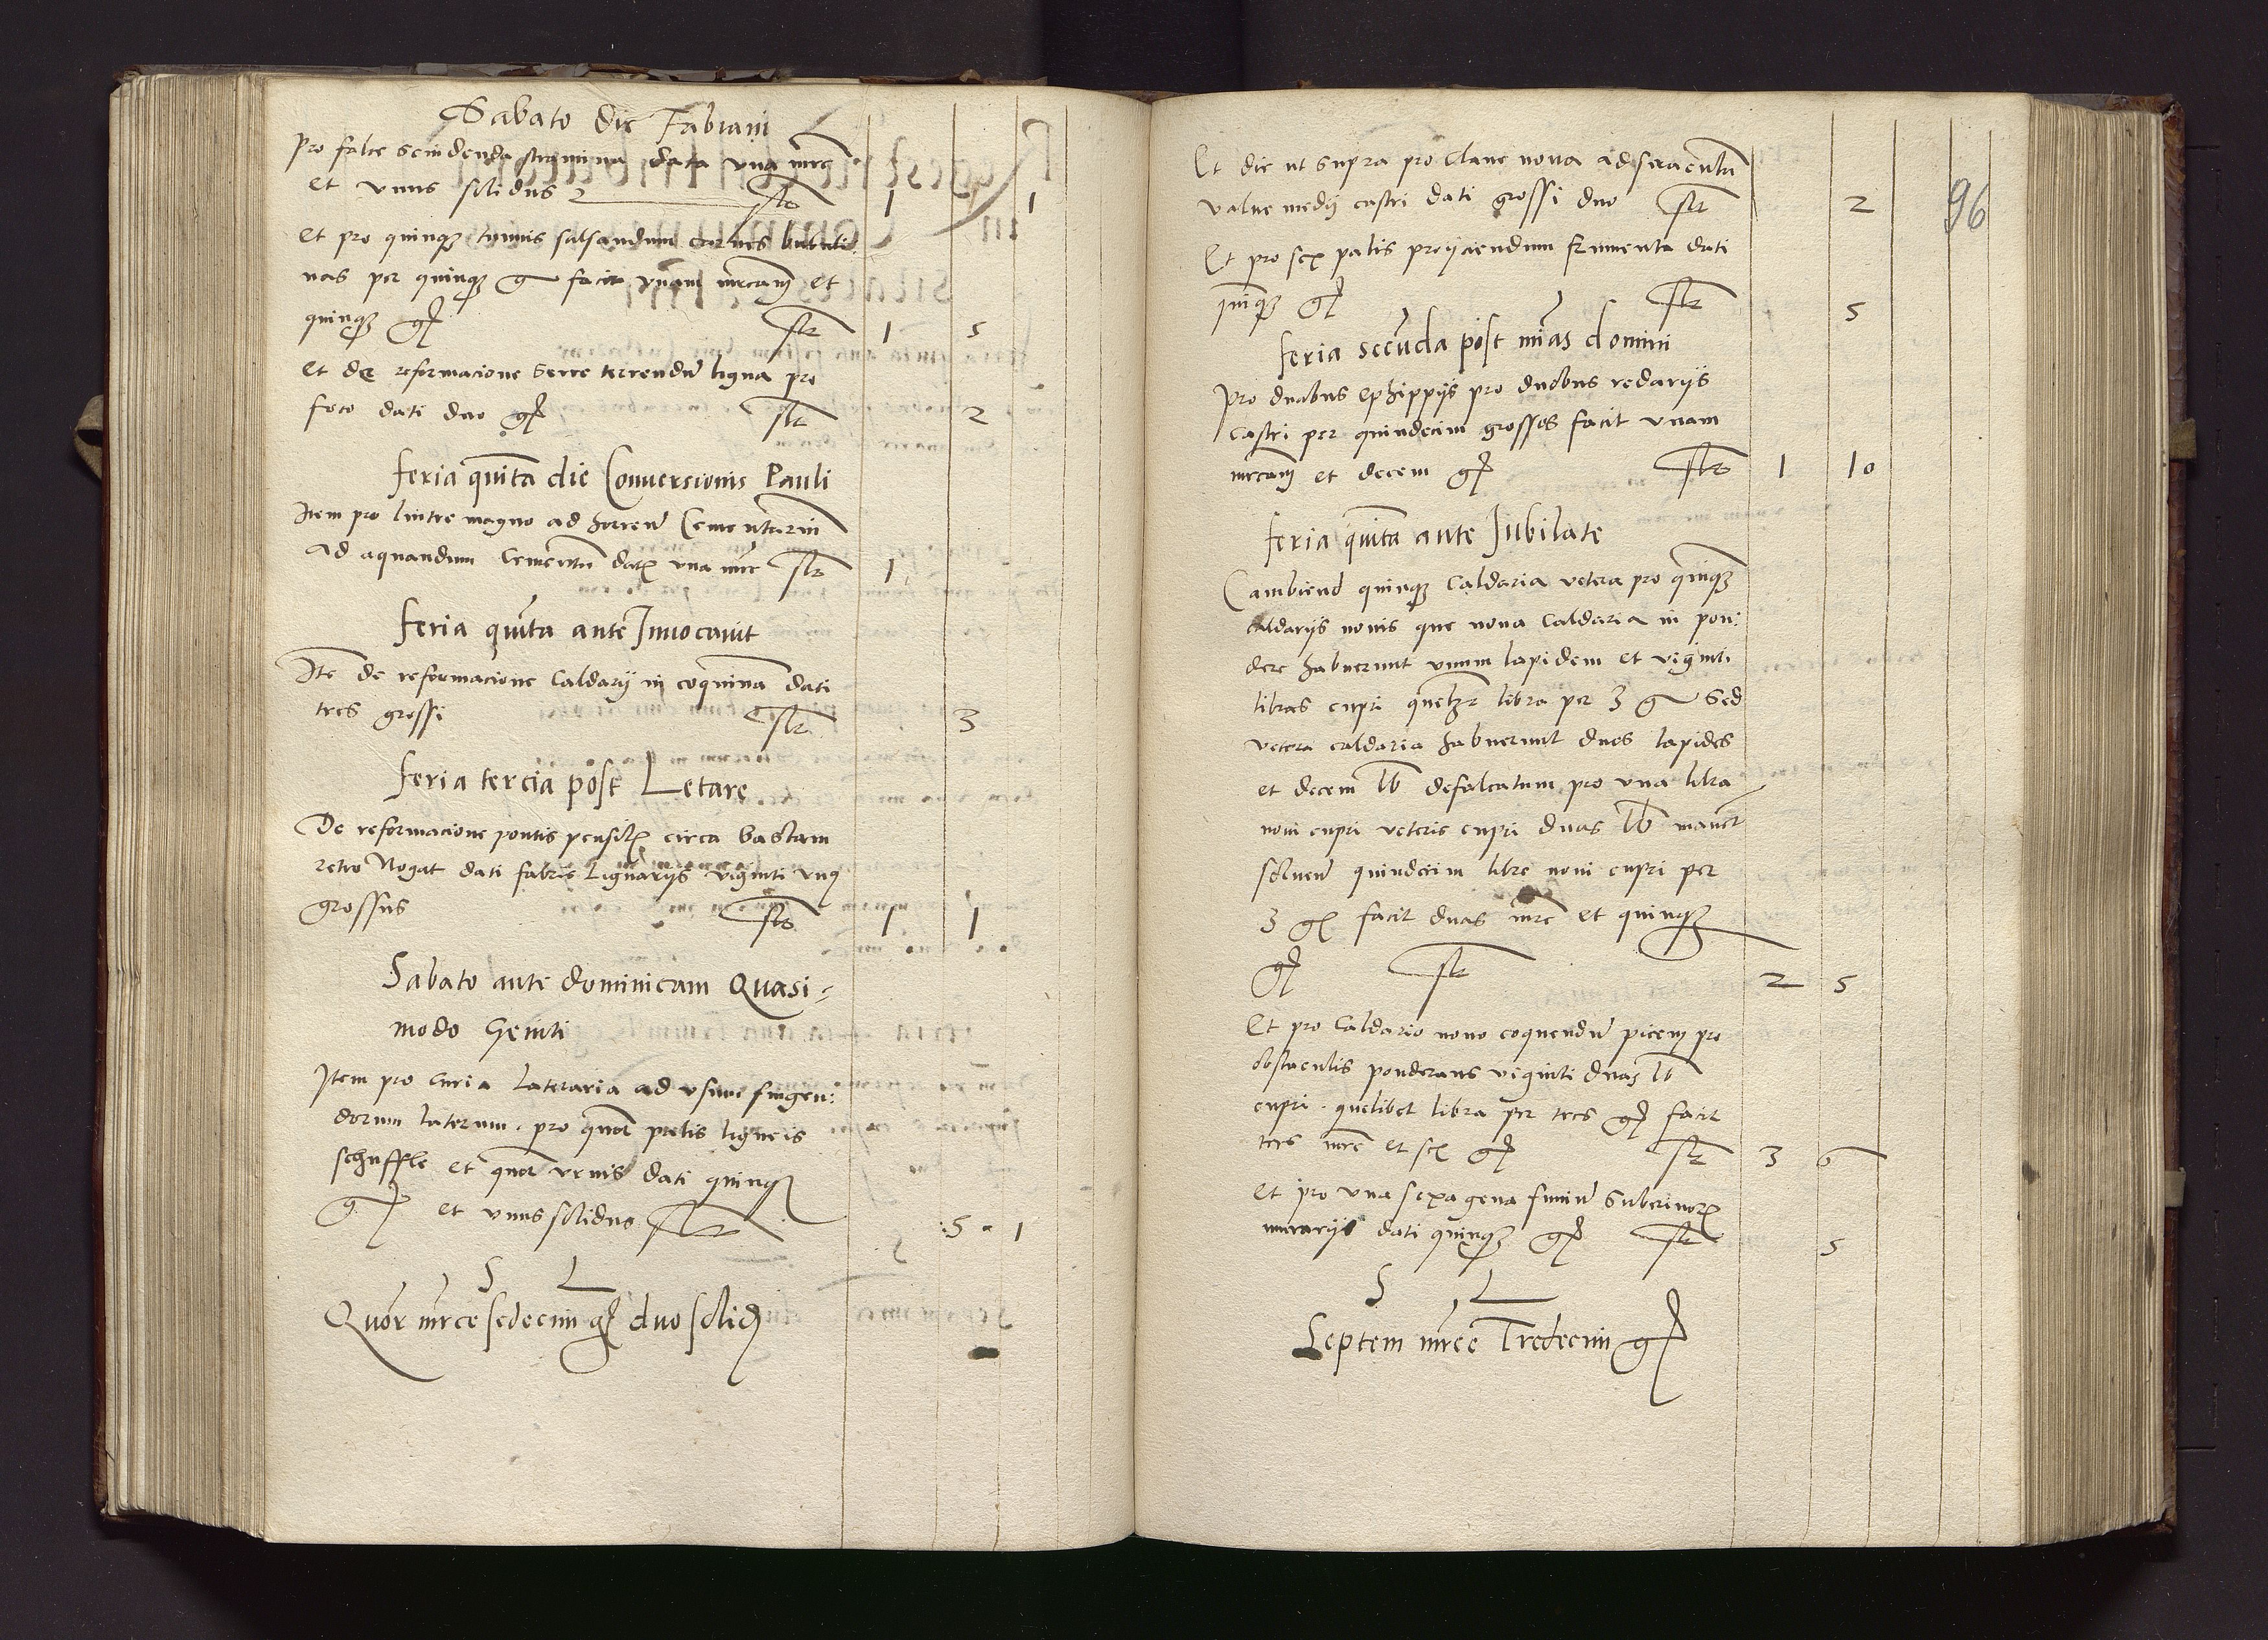 Sabato die Fabiani
Pro falce scindenda stramina data una mrc
et unus solidus fl 1 1
Et pro quinque tunnis salsandum carnes bubuli:
nas per quinque g facit unam mrcam et
quinque g fl 1 5
Et de reformacione serre serrendum ligna pro
foco dati duo g fl 2
feria quinta die Conversionis Pauli
Item pro lintre magno ad horreum Cementarium
ad aquandum Cementum data una mrc fl 1
feria quinta ante Invocavit
Ite de reformacione Caldarij in coquina dati
tres grossi fl 3
feria tercia post Letare
De reformacione pontis pensilis circa bastam
retro Nogat dati fabris Lignarijs viginti unus
grossus fl 1 1
Sabato ante dominicam Quasi=
modo Geniti
Item pro Curia Lateraria ad usum fingen:
dorum laterum pro quor palis ligneis
schuffle et quor urnis dati quinque
g et unus solidus fl 5 1
S L
Quor mrce sedecim g duo solidi
96
Et die ut supra pro Clave nova ad seraculum
valve medij castri dati grossi duo fl 2
Et pro sex palis proijciendum frumenta dati
quinque g fl 5
feria secunda post mias domini
Pro duabus ephippijs pro duobus redarijs
Castri per quindecim grossos facit unam
mrcam et decem g fl 1 10
feria quinta ante Jubilate
Cambiend quinque Caldaria vetera pro quinque
caldarijs novis que nova Caldaria in pon:
dere habuerunt unum lapidem et viginti
libras cupri quelibet libra per 3 g Sed
vetera caldaria habuerunt duos lapides
et decem lb defalcatum pro una libra
novi cupri veteris cupri duas lb manent
solvend quindecim libre novi cupri per
3 g facit duas mrc et quinque
g fl 2 5
Et pro Caldario novo coquendum picem pro
obstaculis ponderans viginti duas lb
cupri quelibet libra per tres g facit
tres mrc et sex g fl 3 6
Et pro una sexagena funium suberinorum
murarijs dati quinque g fl 5
S L
Septem mrce Tredecim g